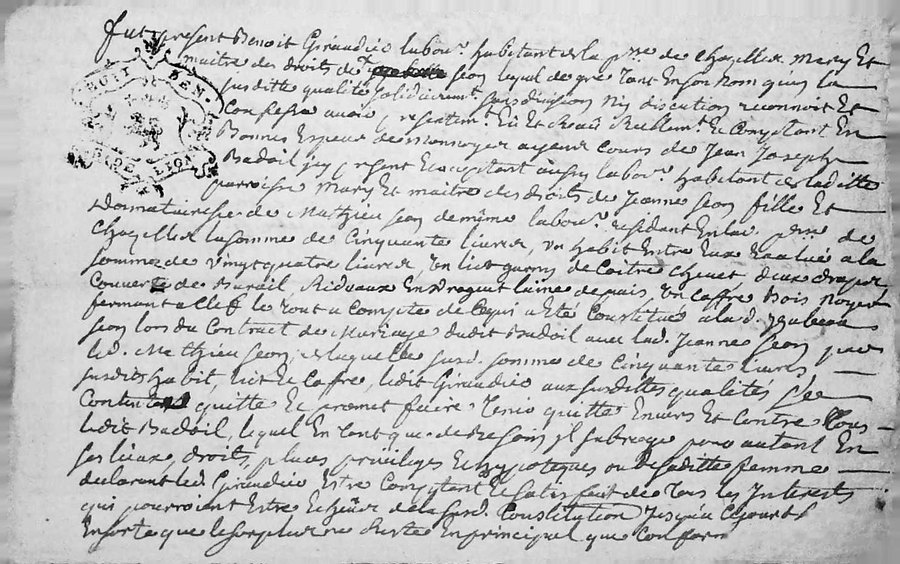 fut present Benoit Giraudier labour. habitant de la prre. de Chazelles Mary Et
maitre des droits de Jeon lequel de gré tant En son nom qu'en la
susditte qualité solidairemt. sans division ny discution reconnoit Et
Confesse avoir, presentemt. Eü Et Receü Reellemt. Et Comptant En
Bonnes Especes de monnoye ayant Cours de Jean Joseph
Badoil icy present Et acceptant aussy labour. habitant de laditte
parroisse Mary Et maitre des droits de Jeanne Jeon fille Et
Donnataire de Mathieu Jeon de même labour. residant En lad. prre. de
Chazelles la somme de Cinquante livres, un habit Entre Eux Evalué a la
somme de vingt quatre livres, un lict garny de Coitre Chevet deux draps
Couverte de Rideaux En laine depuis, un Coffre Bois Noyer
fermant a Clef le tout a Compte de Ce qui a Eté Constitué a lad.
Jeon lors du Contract de Mariage dudit Badoil avec lad. Jeanne Jeon par
led. Mathieu Jeon, de laquelle susd. somme de Cinquante livres
susdit habit, lict Et Coffre, ledit Giraudier aux susdittes qualités s'Est
Contenté quitte Et promet faire tenir quitte Envers Et Contre tous
ledit Badoil, lequel En tant que de Besoin il subroge pour autant En
ses lieux, droits, places privileges Et hypoteques ou de saditte femme
declarant led. Giraudier Estre Comptant Et satisfait de tous les Interests
qui pourroient Estre Echeus de la susd. Constitution jusqu'a Ce jourd'huy
Ensorte que le surplus ne Reste En principal que Conform